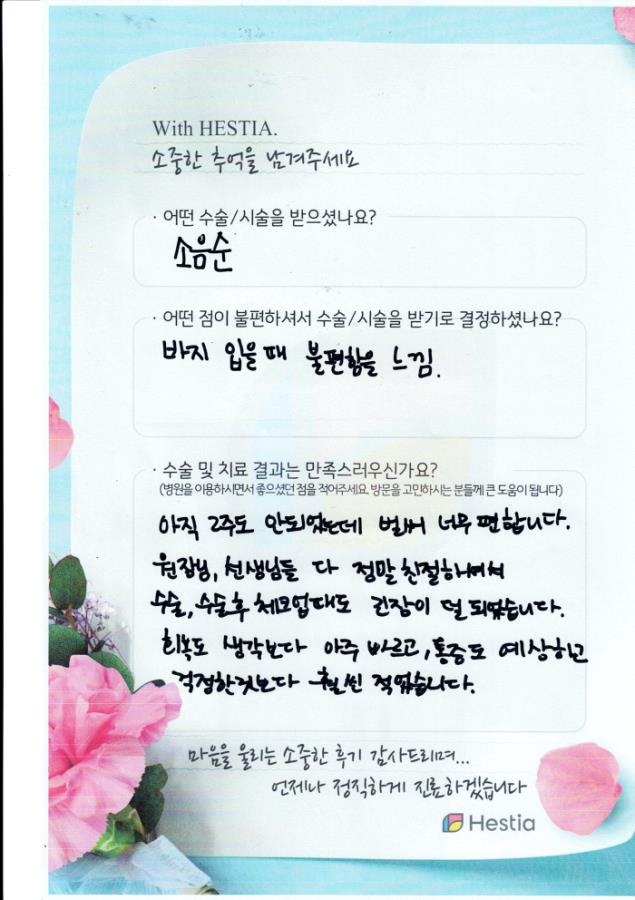 With HESTIA.
소중한 추억을 남겨주세요
· 어떤 수술/시술을 받으셨나요?
소음순
· 어떤 점이 불편하셔서 수술/시술을 받기로 결정하셨나요?
바지 입을때 불편함을 느낌.
· 수술 및 치료 결과는 만족스러우신가요?
(병원을 이용하시면서 좋으셨던 점을 적어주세요. 방문을 고민하시는 분들께 큰 도움이 됩니다)
아직 2주도 안되었는데 벌써 너무 편합니다.
원장님, 선생님들 다 정말 친절하셔서
수술, 수술후 체모업때도 긴장이 덜 되었습니다.
회복도 생각보다 아주 빠르고, 통증도 예상하고
걱정한것보다 훨씬 적었습니다.
마음을 울리는 소중한 후기 감사드리며...
언제나 정직하게 진료하겠습니다
Hestia